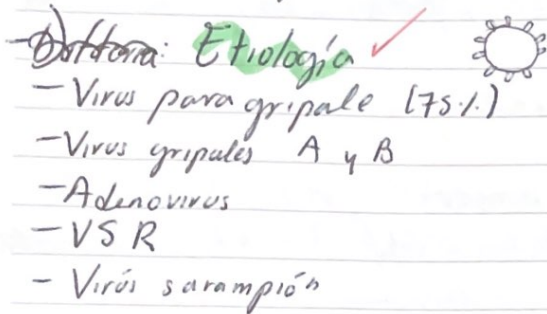 Etiología
- Virus para gripale (75%)
- Virus gripales A y B
- Adenovirus
- VSR
- Virús sarampión